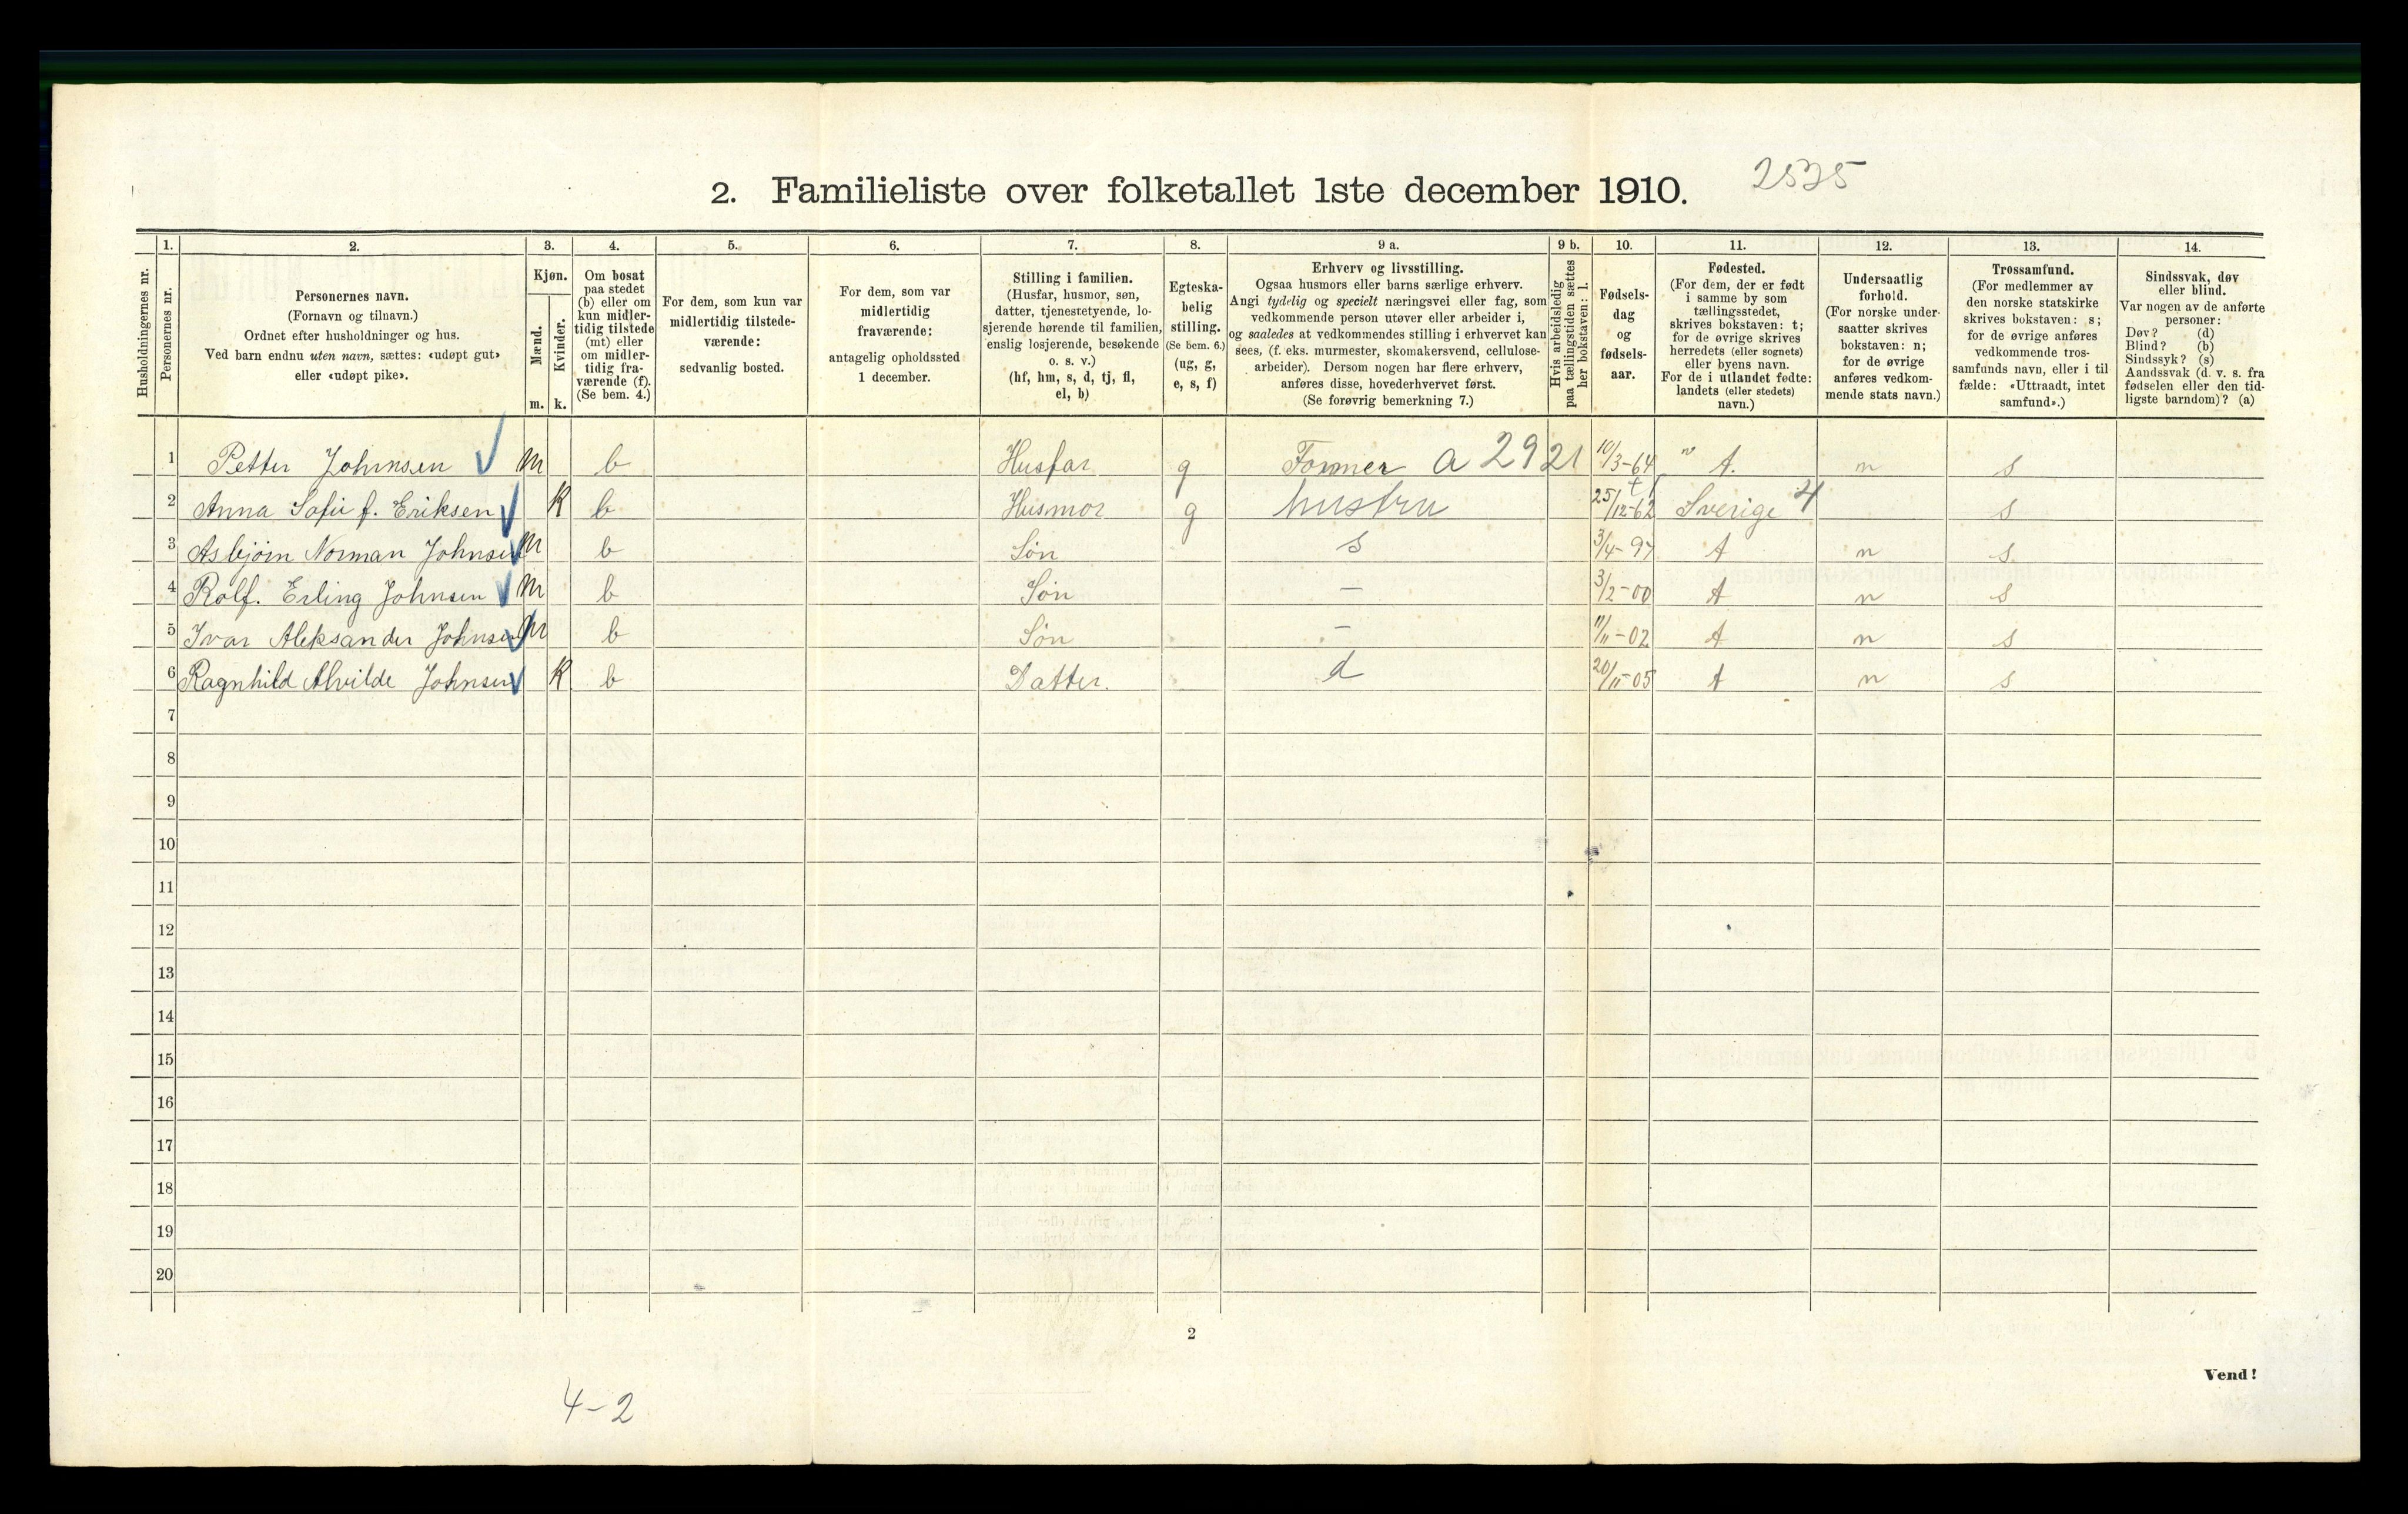 2. Familieliste over folketallet 1ste december 1910.
2525
1. 2. 3. 4. 5. 6. 7. 8. 9 a. 9 b. 10. 11. 12. 13. 14.
Husholdningernes nr.
Personernes nr.
Personernes navn.
(Fornavn og tilnavn.)
Ordnet efter husholdninger og hus.
Ved barn endnu uten navn, sættes: «udøpt gut»
eller «udøpt pike».
Kjøn.
Mænd.
Kvinder.
m. k.
Om bosat
paa stedet
(b) eller om
kun midler-
tidig tilstede
(mt) eller
om midler-
tidig fra-
værende (f).
(Se bem. 4.)
For dem, som kun var
midlertidig tilstede-
værende:
sedvanlig bosted.
For dem, som var
midlertidig
fraværende:
antagelig opholdssted
1 december.
Stilling i familien.
(Husfar, husmor, søn,
datter, tjenestetyende, lo-
sjerende hørende til familien,
enslig losjerende, besøkende
o. s. v.)
(hf, hm, s, d, tj, fl,
el, b)
Egteska-
belig
stilling.
(Se bem. 6.)
(ug, g,
e, s, f)
Erhverv og livsstilling.
Ogsaa husmors eller barns særlige erhverv.
Angi tydelig og specielt næringsvei eller fag, som
vedkommende person utøver eller arbeider i,
og saaledes at vedkommendes stilling i erhvervet kan
sees, (f. eks. murmester, skomakersvend, cellulose-
arbeider). Dersom nogen har flere erhverv,
anføres disse, hovederhvervet først.
(Se forøvrig bemerkning 7.)
Hvis arbeidsledig
paa tællingstiden sættes
her bokstaven: l.
Fødsels-
dag
og
fødsels-
aar.
Fødested.
(For dem, der er født
i samme by som
tællingsstedet,
skrives bokstaven: t;
for de øvrige skrives
herredets (eller sognets)
eller byens navn.
For de i utlandet fødte:
landets (eller stedets)
navn.)
Undersaatlig
forhold.
(For norske under-
saatter skrives
bokstaven: n;
for de øvrige
anføres vedkom-
mende stats navn.)
Trossamfund.
(For medlemmer av
den norske statskirke
skrives bokstaven: s;
for de øvrige anføres
vedkommende tros-
samfunds navn, eller i til-
fælde: «Uttraadt, intet
samfund».)
Sindssvak, døv
eller blind.
Var nogen av de anførte
personer:
Døv? (d)
Blind? (b)
Sindssyk? (s)
Aandssvak (d. v. s. fra
fødselen eller den tid-
ligste barndom)? (a)
1 Petter Johnsen m b Husfar g Former a 2921 10/3-64 t. n s
2 Anna Sofie f. Eriksen K b Husmor g hustru 25/12-62 Sverige 4 s
3 Asbjørn Norman Johnsen m b Søn s 3/4-97 t n s
4 Rolf. Erling Johnsen m b Søn — 3/2-00 t n s
5 Ivar Aleksander Johnsen m b Søn — 11/11-02 t n s
6 Ragnhild Alvilde Johnsen K b Datter. d 20/11-05 t n s
7
8
9
10
11
12
13
14
15
16
17
18
19
20
2
Vend!
4-2